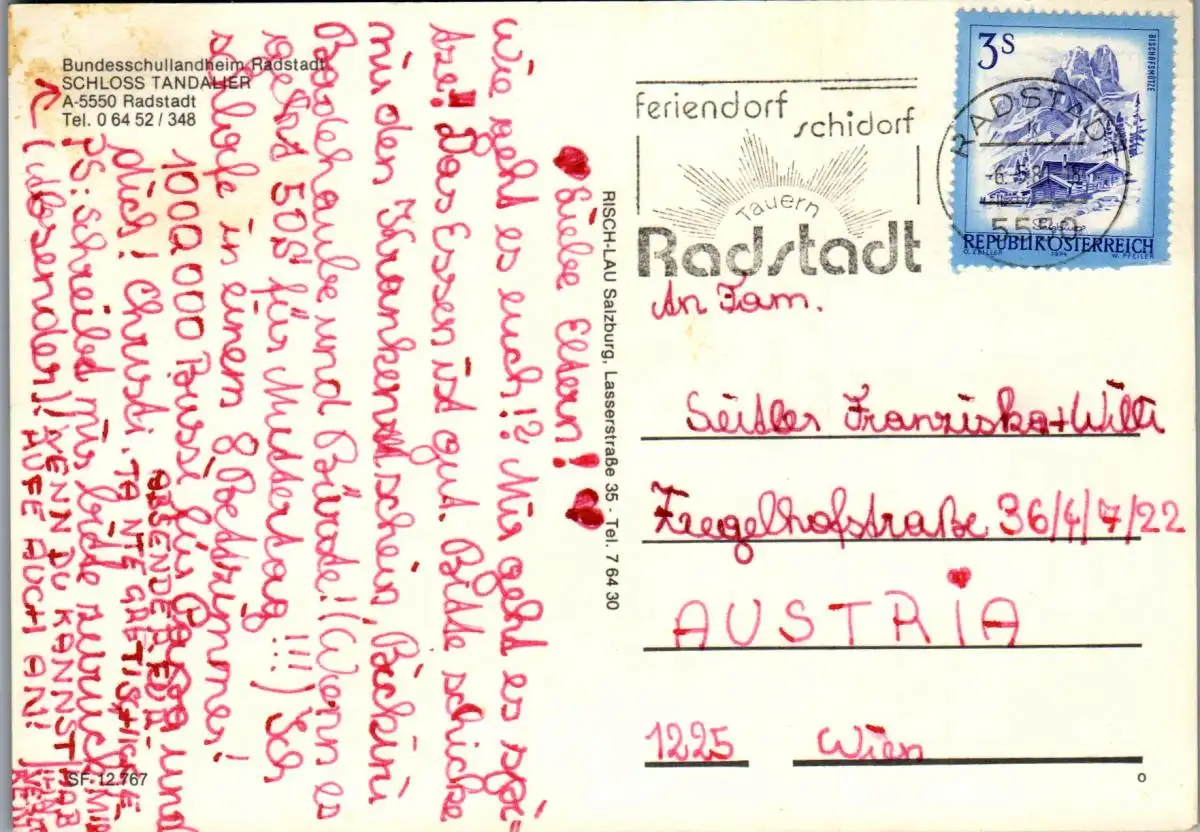 Bundesschullandheim Radstadt
SCHLOSS TANDALIER
A-5550 Radstadt
Tel. 0 64 52 / 348
Liebe Eltern!
Wie geht es euch!? Mir geht es spi=
tze!! Das Essen ist gut. Bitte schicke
mir den Krankenschein, Bickini
Badehaube und Bürste! (Wenn es
geht 50S für Muttertag !!!) Ich
schlafe in einem 8 Bettzimmer!
1000 000 Bussi für Papa und
dich! Christi
PS: Schreibt mir bitte zurück
(Absender)! WENN DU KANNST
RUFE AUCH AN!
SF 12.767
RISCH-LAU Salzburg, Lasserstraße 35 - Tel. 7 64 30
feriendorf
schidorf
Tauern
Radstadt
RADSTADT
5550
3S
BISCHOFSMÜTZE
REPUBLIK ÖSTERREICH
O. ZEILLER 1974 W. PFEILER
An Fam.
Seitler Franziska+Willi
Ziegelhofstraße 36/4/7/22
AUSTRiA
1225 Wien